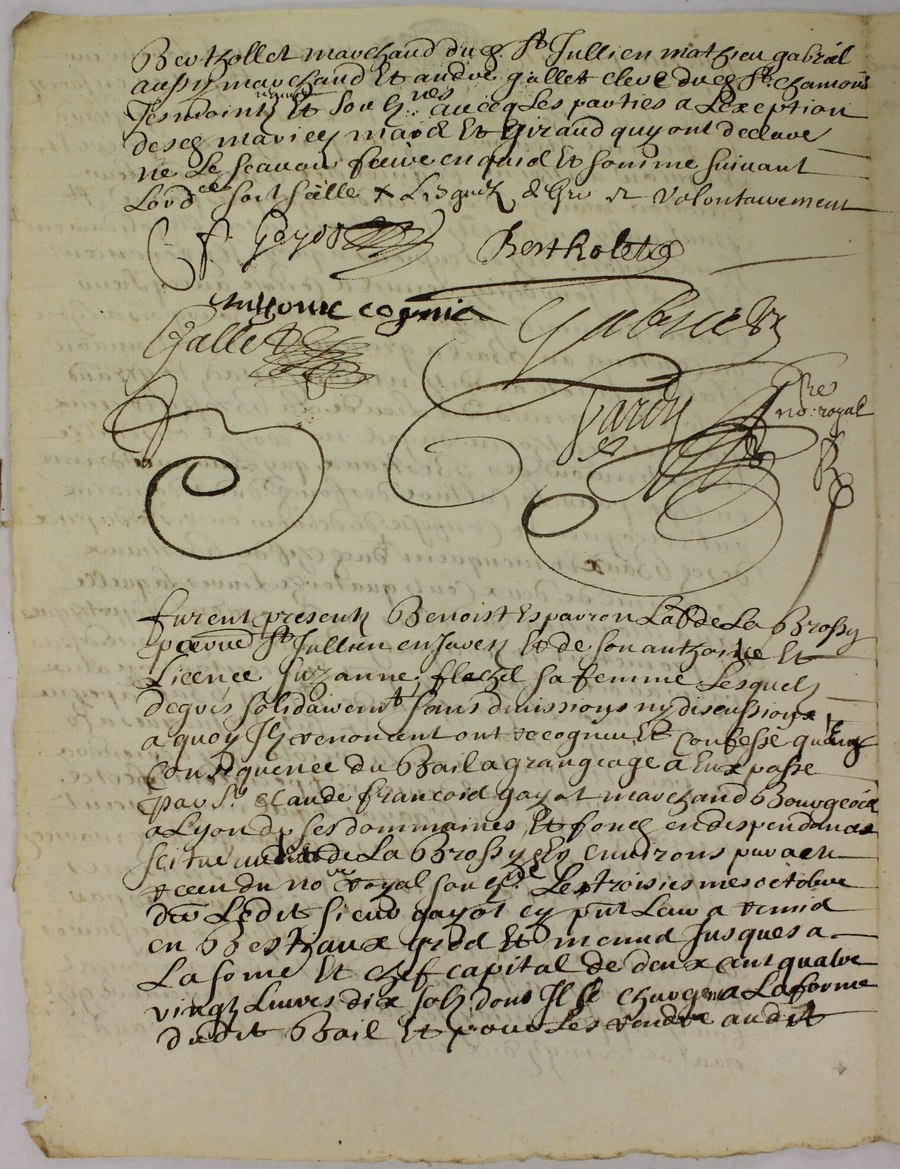 Berthollet marchand dud St Jullien mathieu gabriel
aussy marchand Et andre gallet clerc dud St chamond
Tesmoints Et soubznes avecq Les parties a L'exeption
desd mariez Et Giraud quy ont declaire
ne Le scavoir faire enquis Et somme suivant
Lord ce soit scelle Lesquelz de gre Et volontairement
Gayot
Bertholet
Anthoine cognie
Gallet
Gabriel
Jardy
no.re royal
furent presentz Benoist Espavron Lab de La Brossy
parroesse St Jullien en Javez Et de son authorite Et
Licence Suzanne flachel sa femme Lesquelz
de gres solidairemt sans divissions ny discussions
a quoy Ilz renoncent ont recogneu Et Confessé qu'en
Consequence du Bail a grangeage a Eux passe
par Sr Claude francois gayot marchand Bourgeois
a Lyon de ses dommaines Et fonds en despendances
scitue audit de La Brossy Et Environs par acte
receu du no.re royal soubz.ne Le troisiesme octobre
Ledit sieur gayot cy pnt Leur a remis
en Bestiaux gros Et menus Jusques a
La some Et chef capital de deux cent quatre
vingtz Livres dix solz dont Ilz se chargent a La forme
dudit Bail Et pour Les rendre audit